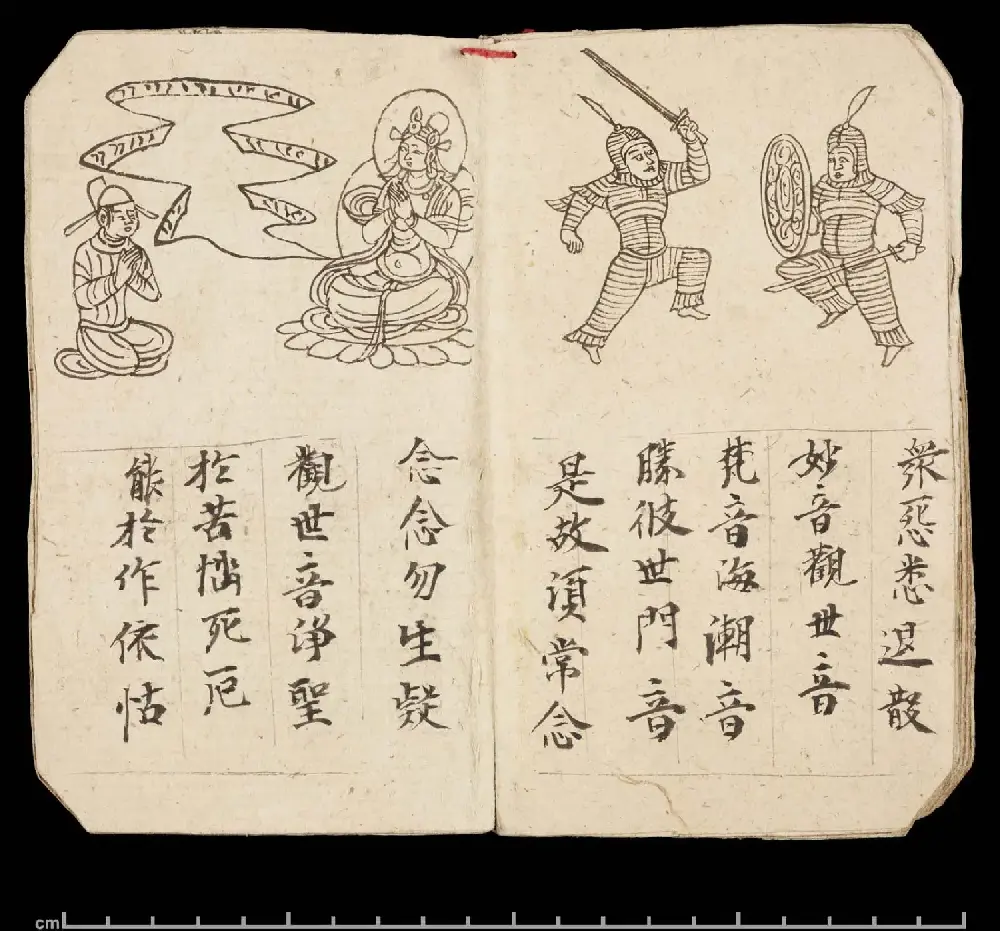 衆怨悉退散
妙音觀世音
梵音海潮音
勝彼世門音
是故須常念
念念勿生疑
觀世音淨聖
於苦惱死厄
能於作依怙
cm